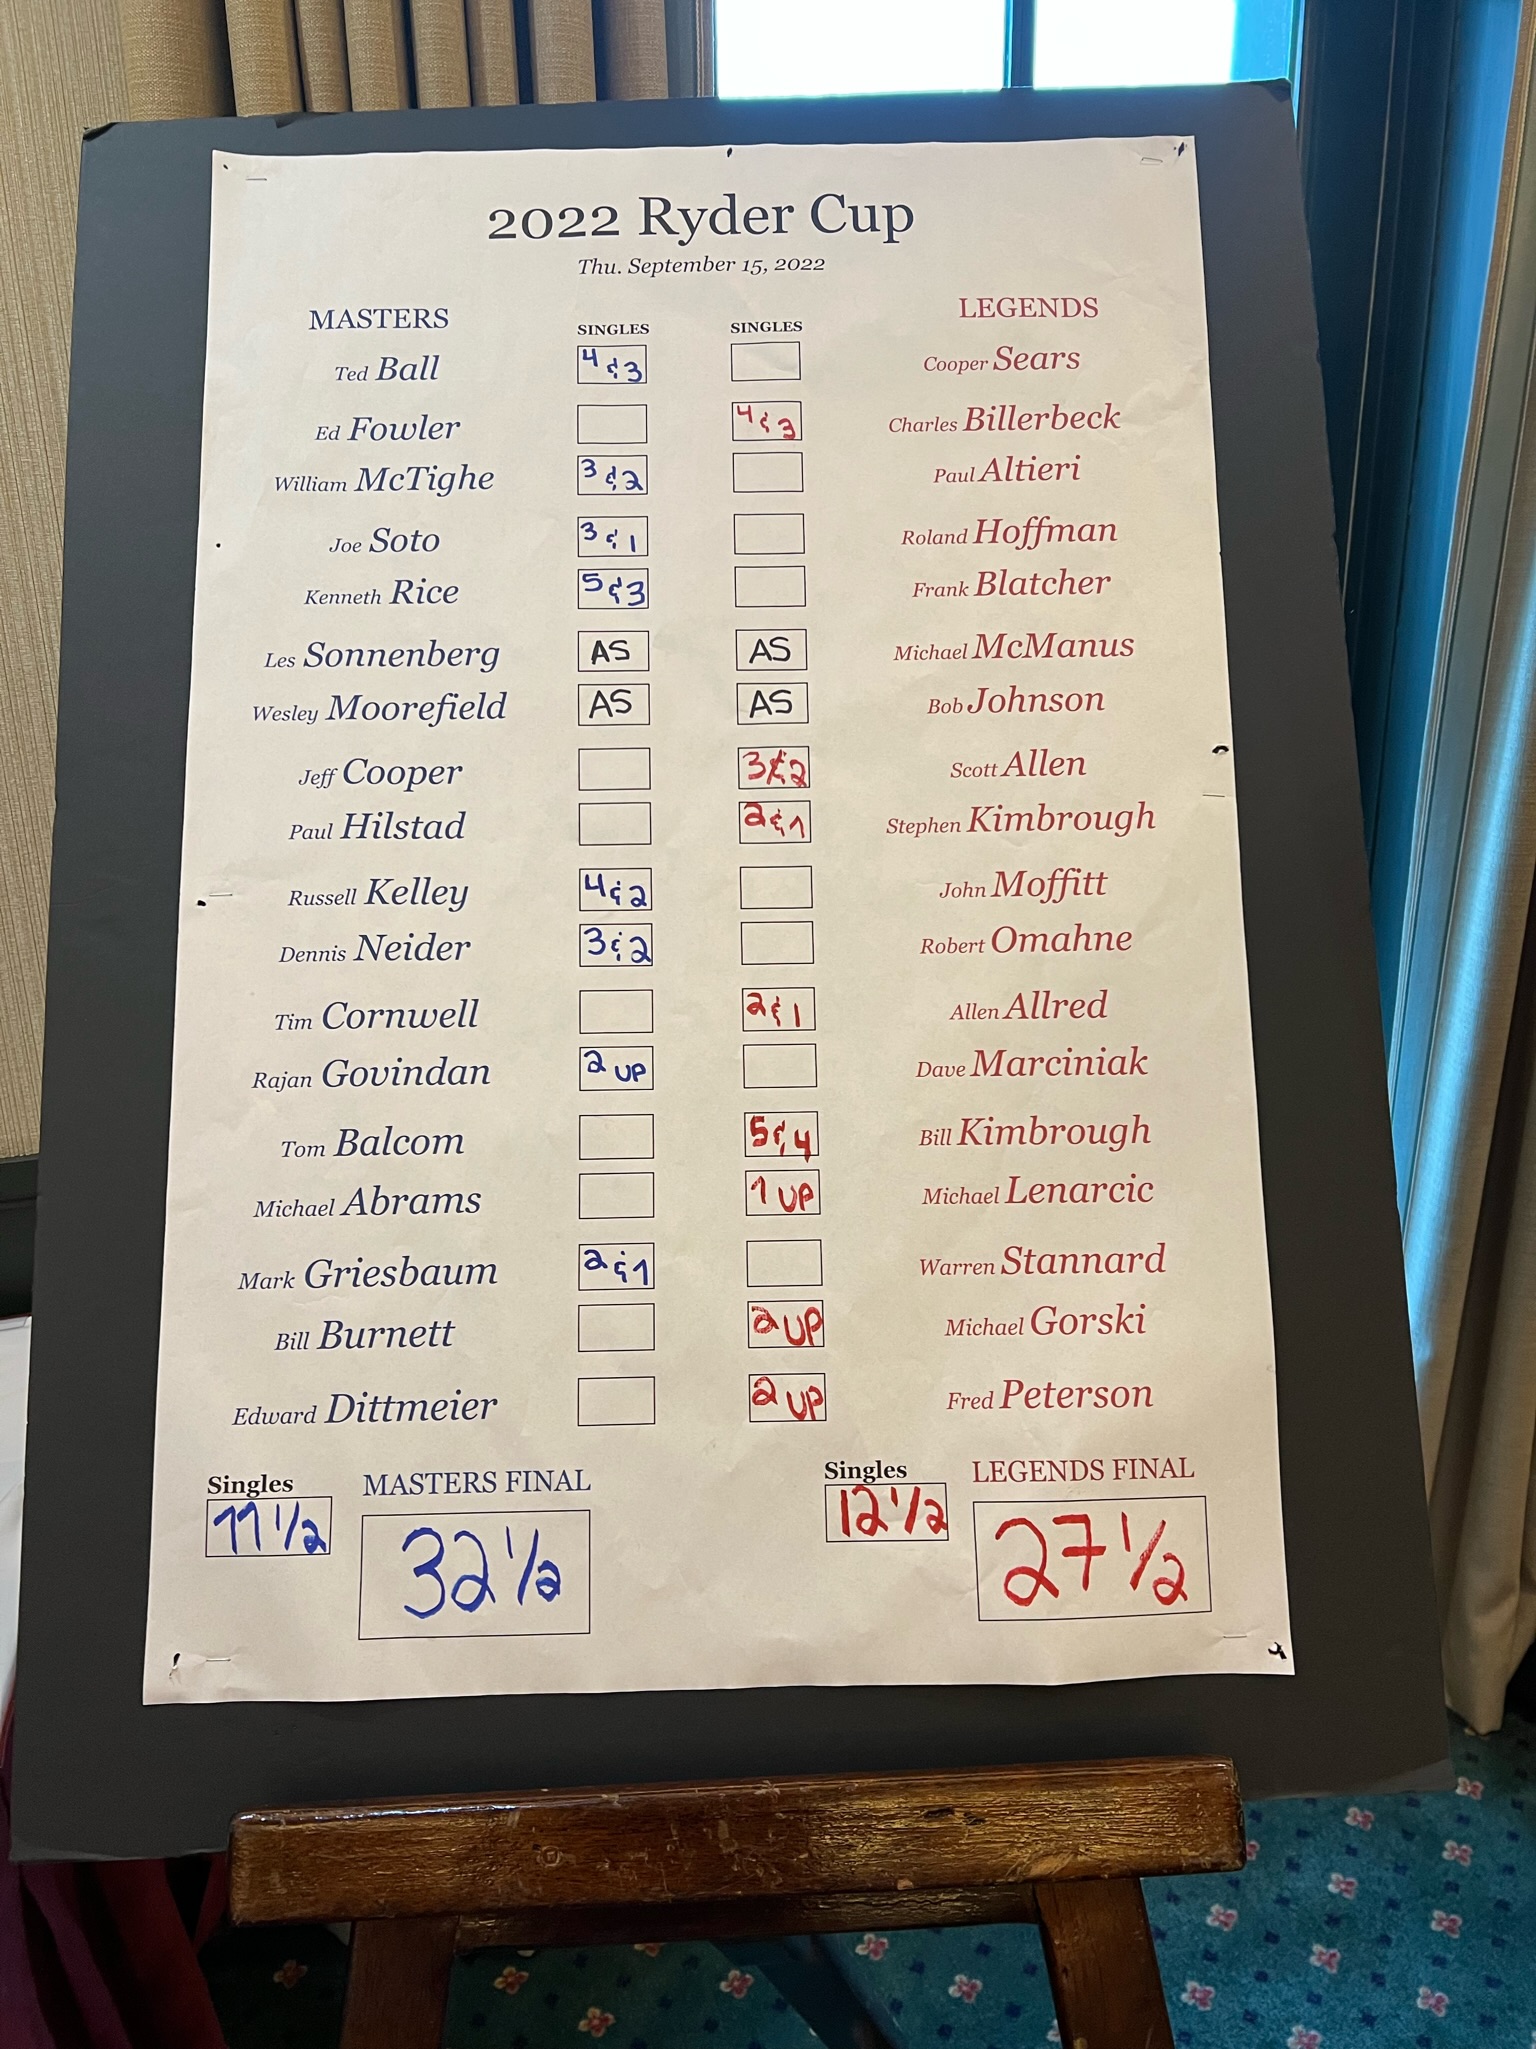 2022 Ryder Cup
Thu. September 15, 2022
MASTERS SINGLES SINGLES LEGENDS
Ted Ball 4 & 3 Cooper Sears
Ed Fowler 4 & 3 Charles Billerbeck
William McTighe 3 & 2 Paul Altieri
Joe Soto 3 & 1 Roland Hoffman
Kenneth Rice 5 & 3 Frank Blatcher
Les Sonnenberg AS AS Michael McManus
Wesley Moorefield AS AS Bob Johnson
Jeff Cooper 3 & 2 Scott Allen
Paul Hilstad 2 & 1 Stephen Kimbrough
Russell Kelley 4 & 2 John Moffitt
Dennis Neider 3 & 2 Robert Omahne
Tim Cornwell 2 & 1 Allen Allred
Rajan Govindan 2 UP Dave Marciniak
Tom Balcom 5 & 4 Bill Kimbrough
Michael Abrams 1 UP Michael Lenarcic
Mark Griesbaum 2 & 1 Warren Stannard
Bill Burnett 2 UP Michael Gorski
Edward Dittmeier 2 UP Fred Peterson
Singles MASTERS FINAL Singles LEGENDS FINAL
11 1/2 32 1/2 12 1/2 27 1/2